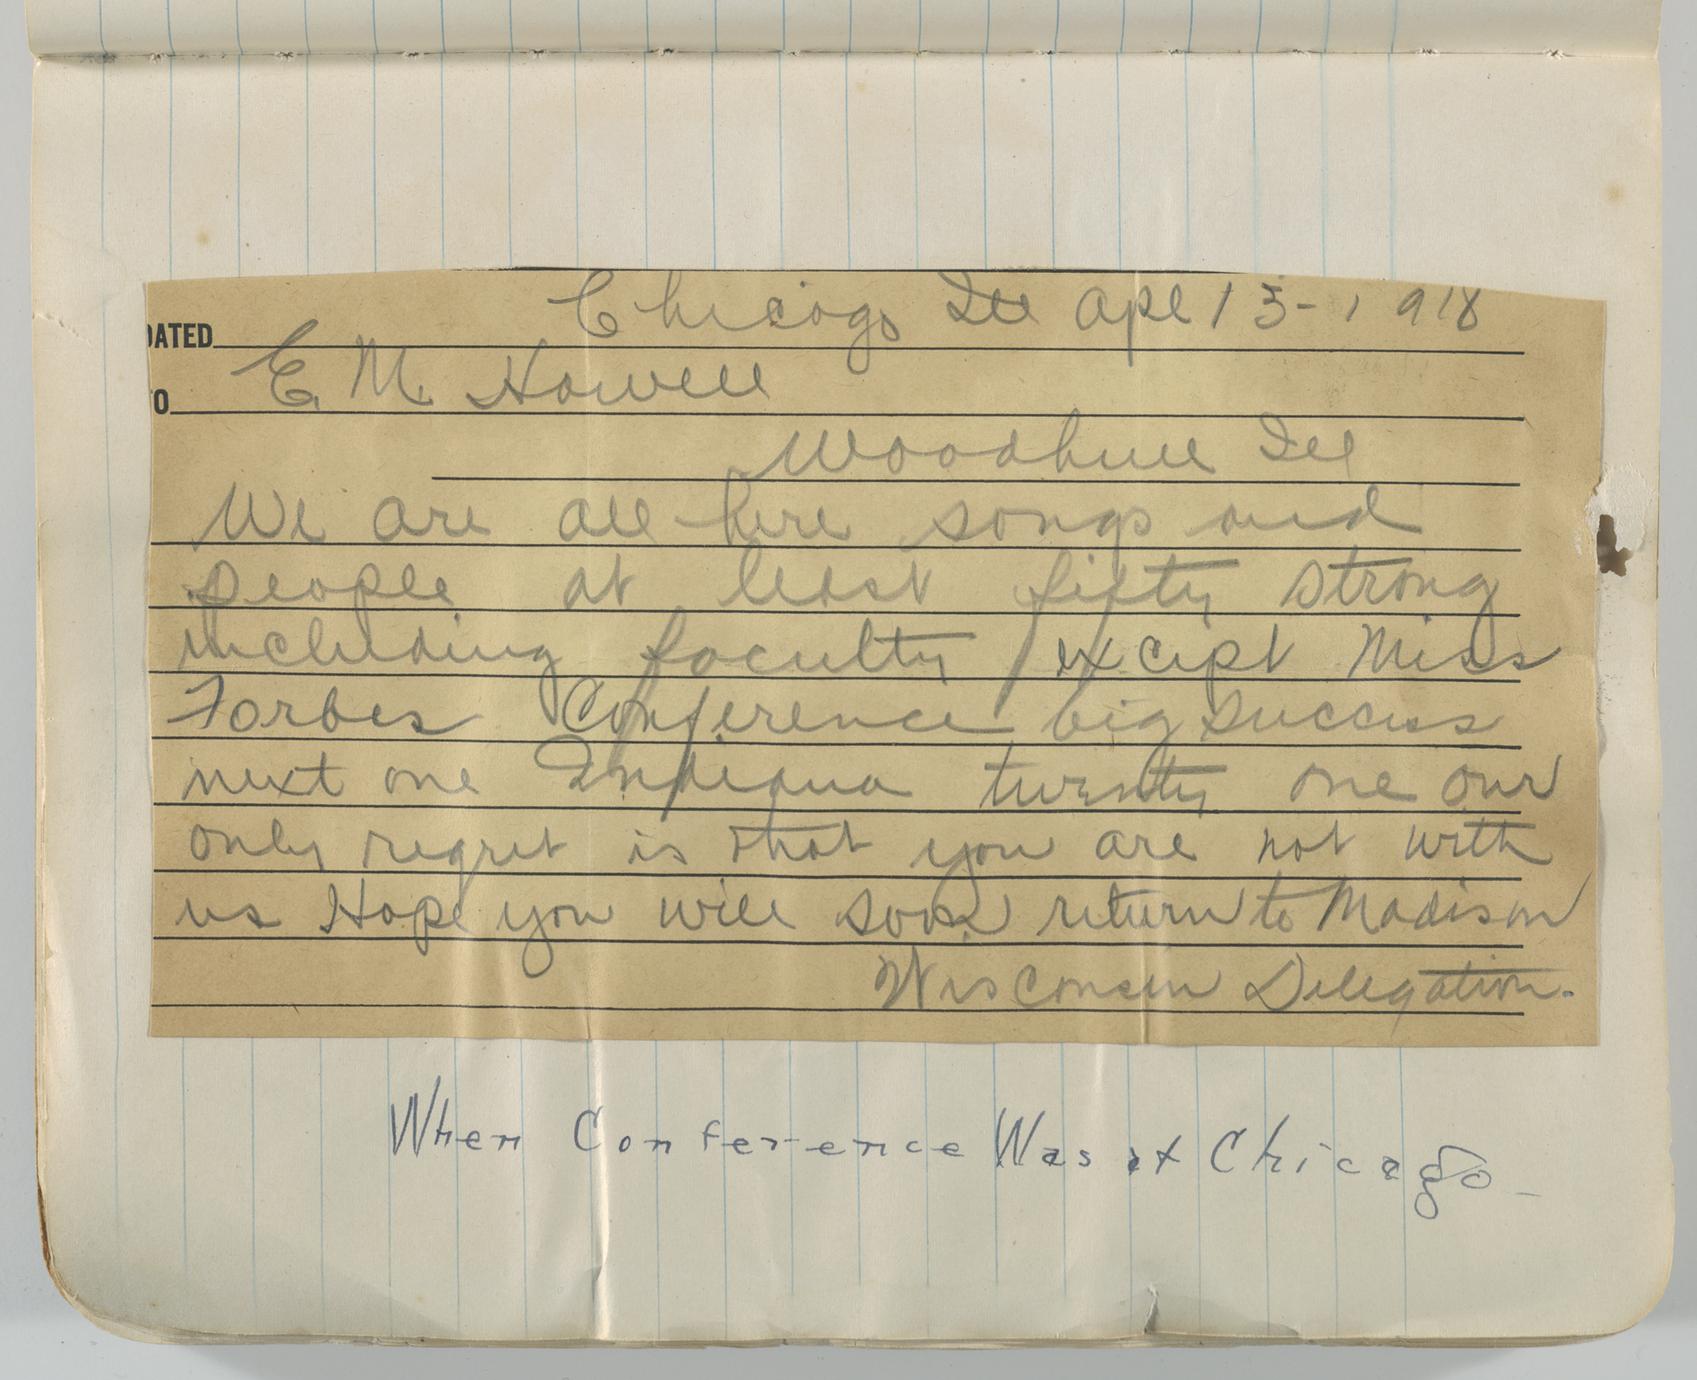 Chicago Ill Apl 13-1918
DATED
E. M. Howell
TO
Woodhull Ill
We are all here songs and
people at least fifty strong
including faculty except Miss
Forbes Conference big success
next one Indiana twenty one our
only regret is that you are not with
us Hope you will soon return to Madison
Wisconsin Delegation.
When Conference Was at Chicago-